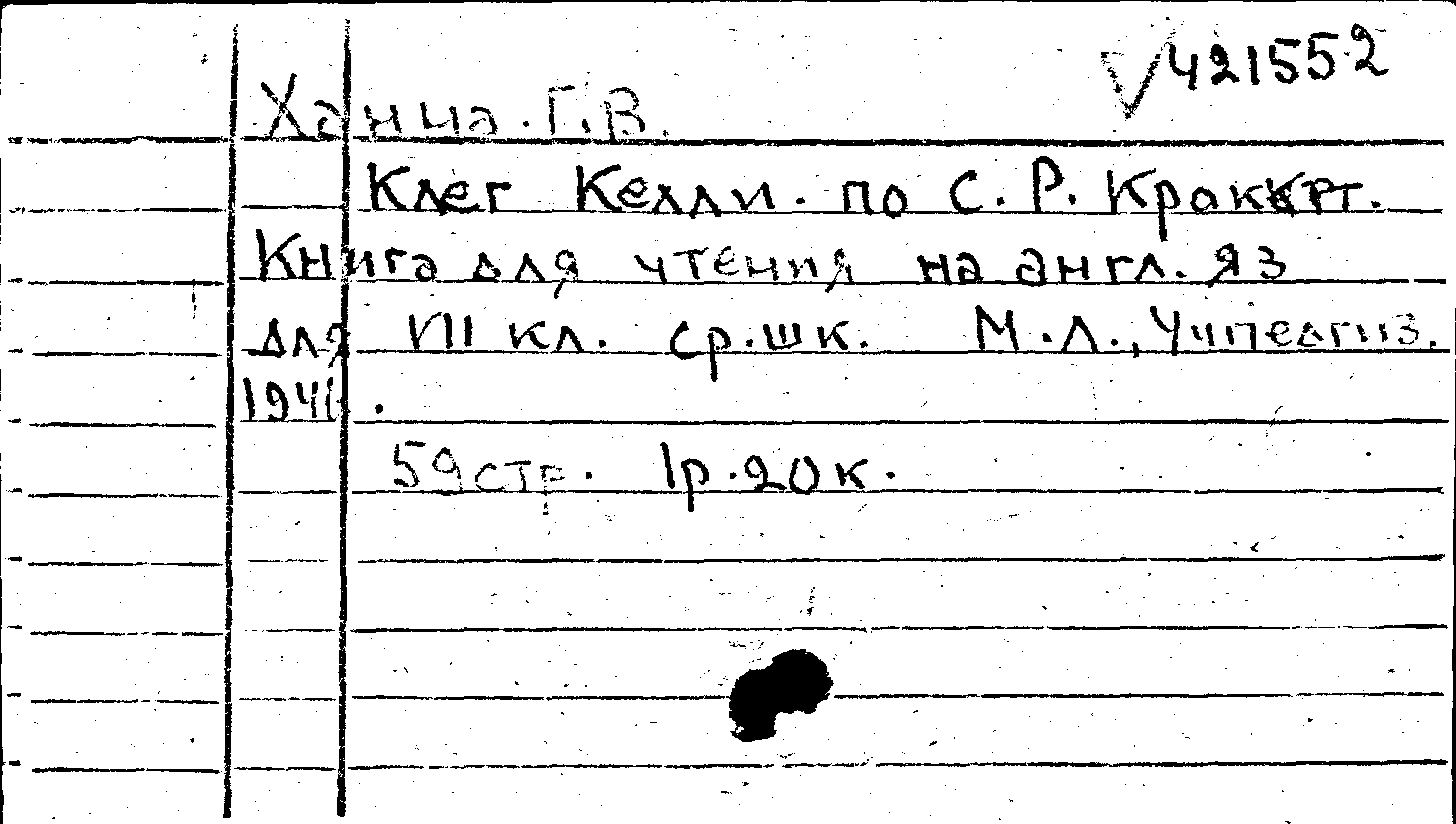 √421552
Ханца. Г.В.
Клег Келли. по С. Р. Кроккрт.
Книга для чтения на англ. яз
для VIII кл. ср.шк. М.Л., Учпедгиз.
1941.
59стр. 1р.20к.